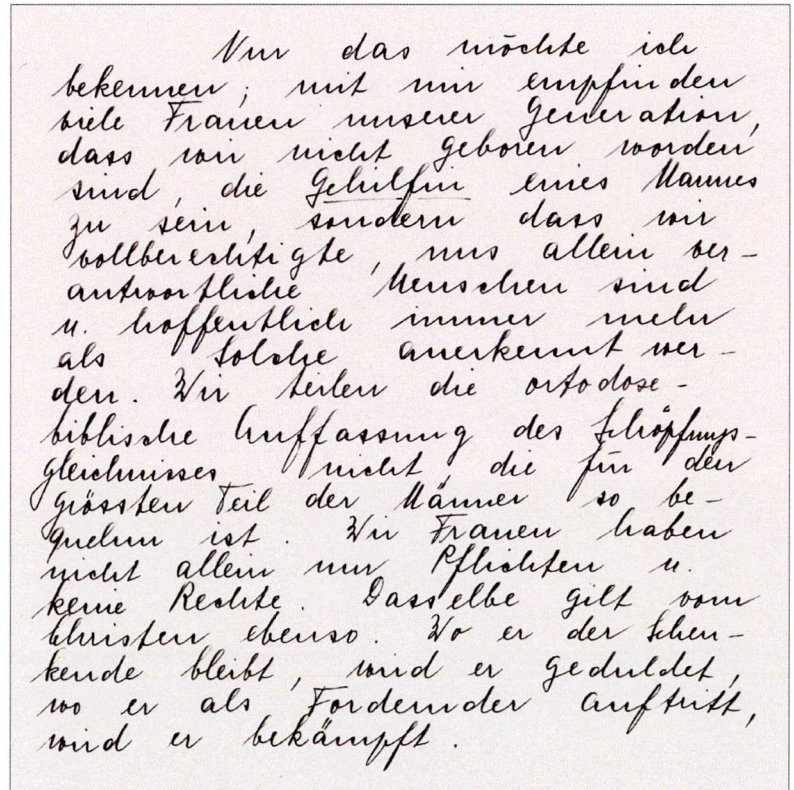 Nur das möchte ich
bekennen; mit mir empfinden
viele Frauen unserer Generation,
dass wir nicht geboren worden
sind, die Gehilfin eines Mannes
zu sein, sondern dass wir
vollberechtigte, uns allein ver-
antwortliche Menschen sind
u. hoffentlich immer mehr
als Solche anerkennt wer-
den. Wir teilen die ortodose-
biblische Auffassung des Schöpfungs-
gleichnisses nicht, die für den
grössten Teil der Männer so be-
quehm ist. Wir Frauen haben
nicht allein nur Pflichten u.
keine Rechte. Dasselbe gilt vom
Christen ebenso. Wo er der Schen-
kende bleibt, wird er geduldet,
wo er als Fordernder auftritt,
wird er bekämpft.